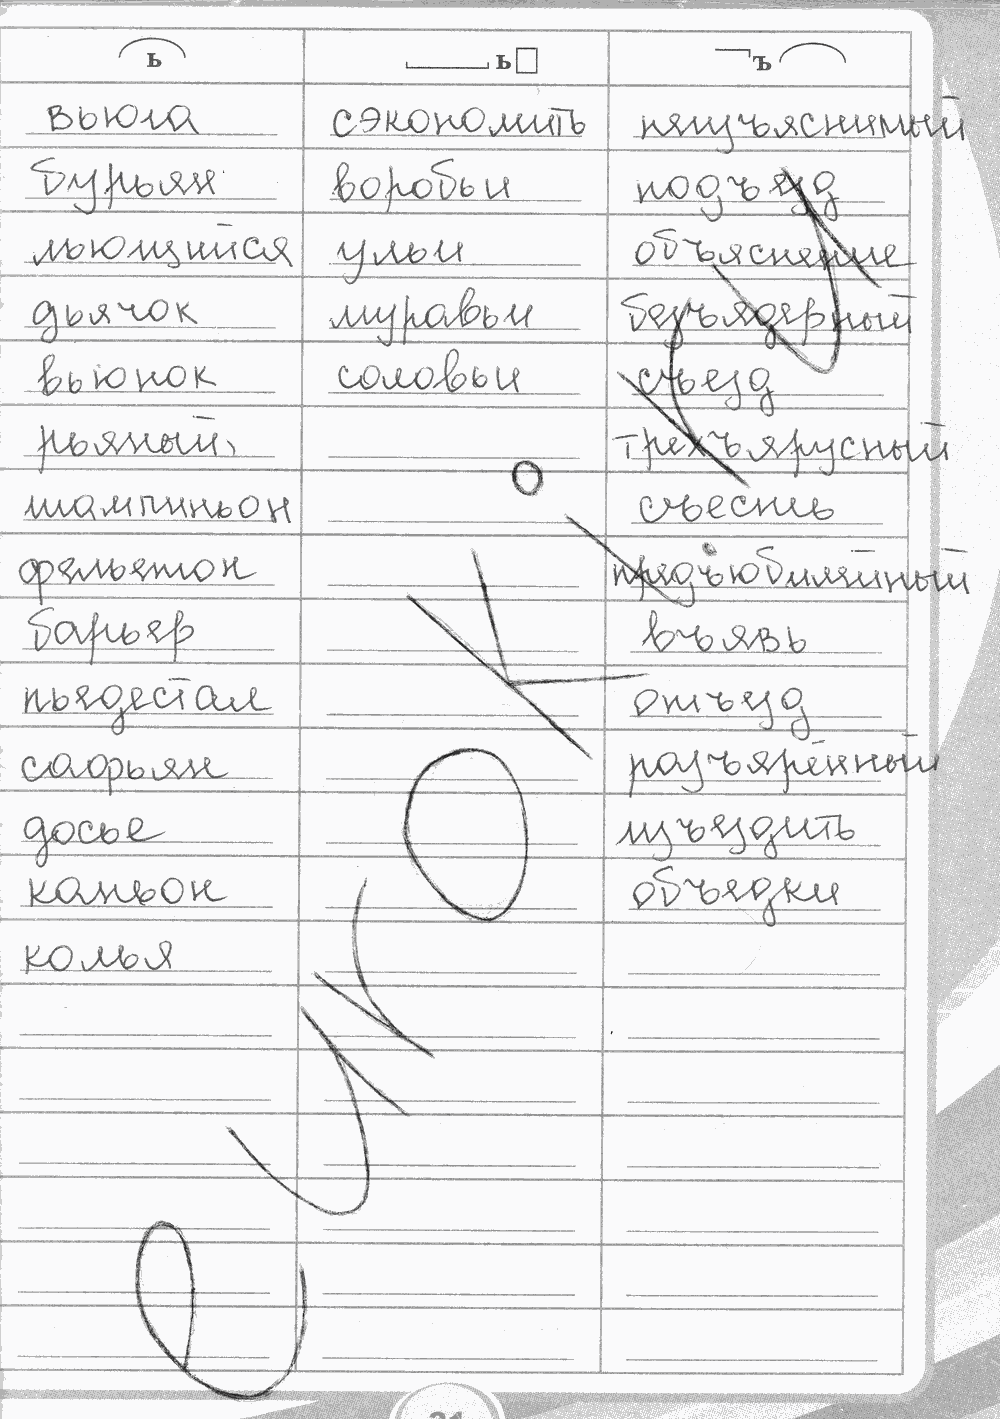 ь
вьюга
бурьян
льющийся
дьячок
вьюнок
рьяный
шампиньон
фельетон
барьер
пьедестал
сафьян
досье
каньон
колья
ь
сэкономить
воробьи
ульи
муравьи
соловьи
ъ
неизъяснимый
подъезд
объяснение
безъядерный
съезд
трехъярусный
съесть
предъюбилейный
въявь
отъезд
разъярённый
изъездить
объедки
euroki.ru